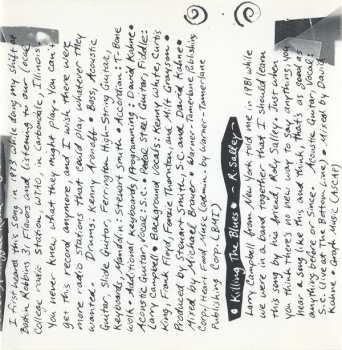 I first heard this song in 1975 while doing my shift at
Baskin Robbins 31 Flavors and listening to our local
college radio station, WTAO, in Carbondale, Illinois.
You never knew what they might play. You can't
get this record anymore, and I wish there were
more radio stations that could play whatever they
wanted. Drums: Kenny Aronoff • Bass, Acoustic
Guitar, Slide Guitar, Ferrington High-String Guitar,
Keyboards, Mandolin: Stewart Smith • Accordian: T-Bone
Wolk • Additional Keyboards/Programming: David Kahne •
Acoustic Guitar, Vocal: S.C. • Pedal Steel Guitar, Fiddle:
Larry Campbell • Background vocals: Kenny White, Curtis
King, Frank Floyd, and Milt Grayson •
Produced by Stewart Smith, S.C. and David Kahne •
Mixed by Michael Brauer • Warner-Tamerlane Publishing
Corp./Heart Food Music (admin. by Warner-Tamerlane
Publishing Corp. (BMI)
• Killing The Blues • - R. Salley -
Larry Campbell from New York told me in 1981 while
we were in a band together that I should learn
this song by his friend, Roly Salley. Just when
you think there's no new way to say anything, you
hear a song like this and think that's as good as
anything before or since. Acoustic Guitar, Vocal:
S.C. (live at the Bottom Line) • Mixed by David
Kahne • Music (ASCAP)